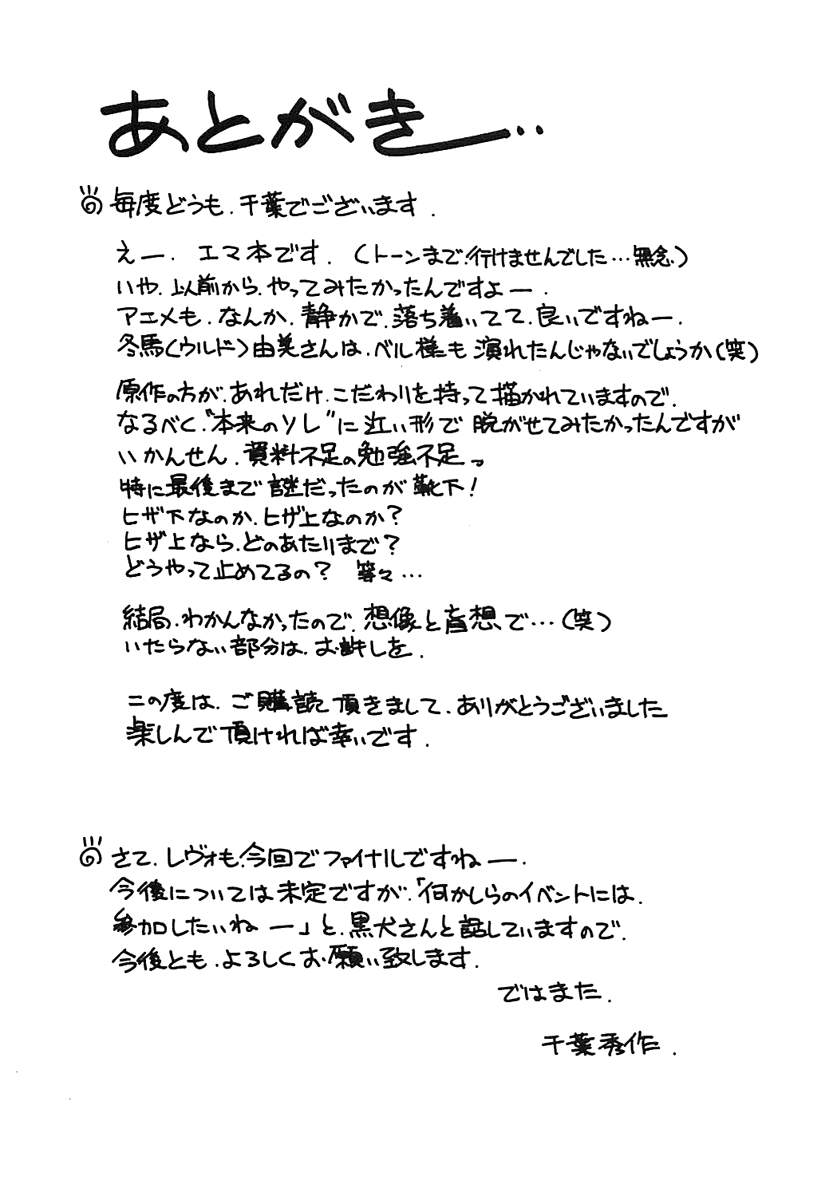 あとがき―‥
毎度どうも、千葉でございます.
えー、エマ本です.（トーンまで、行けませんでした…無念）
いや、以前から、やってみたかったんですよー.
アニメも、なんか、静かで、落ち着いてて、良いですねー.
冬馬（ウルド）由美さんは、ベル様も演れたんじゃないでしょうか（笑）
原作の方が、あれだけ、こだわりを持って描かれていますので、
なるべく、“本来のソレ”に近い形で脱がせてみたかったんですが
いかんせん、資料不足の勉強不足っ
特に最後まで謎だったのが靴下！
ヒザ下なのか、ヒザ上なのか？
ヒザ上なら、どのあたりまで？
どうやって止めてるの？　等々…
結局、わかんなかったので、想像と盲想で…（笑）
いたらない部分は、お許しを.
この度は、ご購読頂きまして、ありがとうございました
楽しんで頂ければ幸いです.
さて、レヴォも、今回でファイナルですねー.
今後については未定ですが、「何かしらのイベントには、
参加したいねー」と、黒犬さんと話していますので、
今後とも、よろしくお願い致します.
ではまた.
千葉秀作.